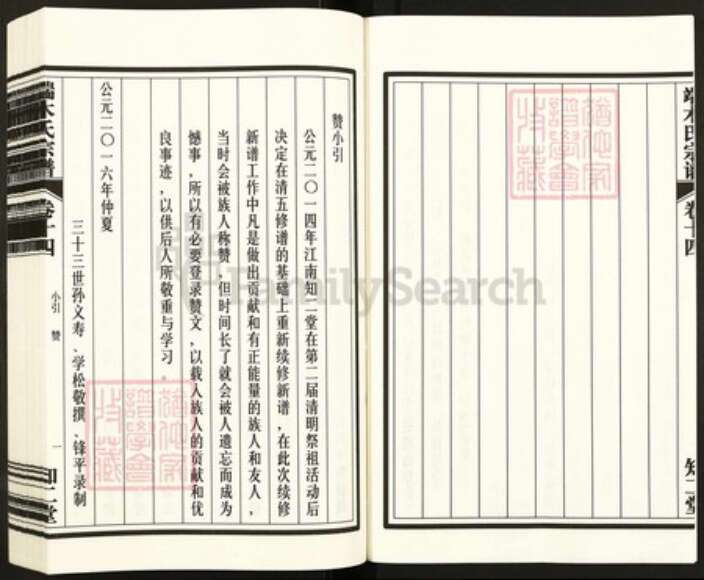 赞小引
公元二〇一四年江南知二堂在第二届清明祭祖活动后
决定在清五修谱的基础上重新续修新谱，在此次续修
新谱工作中凡是做出贡献和有正能量的族人和友人，
当时会被族人称赞，但时间长了就会被人遗忘而成为
憾事，所以有必要登录赞文，以载入族人的贡献和优
良事迹，以供后人所敬重与学习。
公元二〇一六年仲夏
三十三世孙义寿、学松敬撰、锋平录制
端木氏宗谱
卷十四
小引 赞
一
知二堂
端木氏宗谱
卷十四
知二堂
FamilySearch